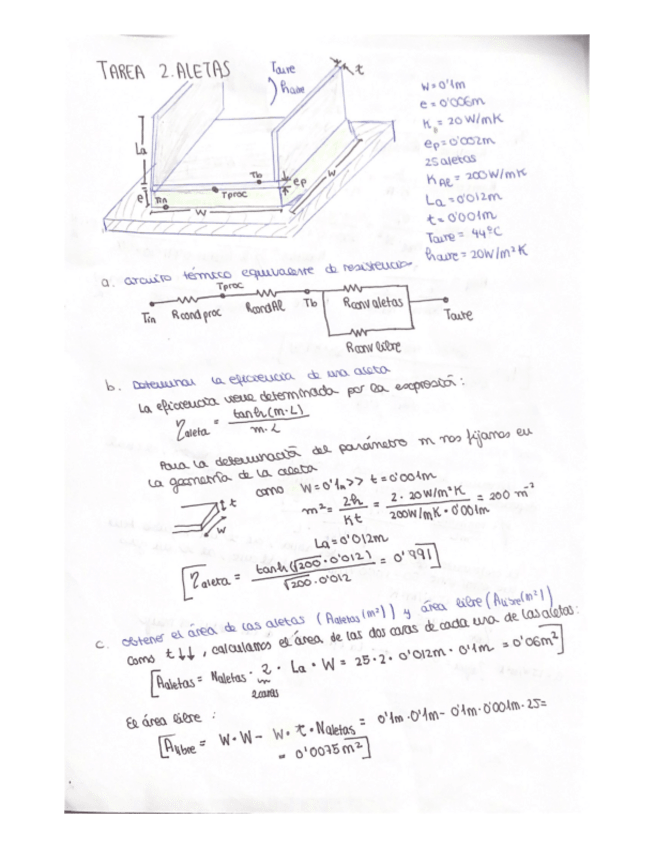 TAREA 2. ALETAS
Taire
haire
t
La
e
Tin
Tproc
Tb
ep
W
W
W=0'1m
e=0'006m
K = 20 W/mK
ep=0'002m
25 aletas
KAl = 200 W/mK
La = 0'012m
t=0'001m
Taire = 44ºC
haire = 20W/m²K
a. circuito térmico equivalente de resistencia
Tin
Rcond proc
Tproc
Rcond Al
Tb
Rconv aletas
Rconv libre
Taire
b. Determinar la eficiencia de una aleta
La eficiencia viene determinada por la expresión:
ηaleta = tanh(m·L) / m·L
Para la determinación del parámetro m nos fijamos en
la geometría de la aleta
t
W
como W=0'1m >> t=0'001m
m² = 2h / Kt = 2·20W/m²K / 200W/mK·0'001m = 200 m⁻²
La=0'012m
[ηaleta = tanh(√200·0'012) / √200·0'012 = 0'991]
c. Obtener el área de las aletas (Aaletas(m²)) y área libre (Alibre(m²))
Como t↓↓, calculamos el área de las dos caras de cada una de las aletas:
[Aaletas = Naletas · 2 · La · W = 25·2·0'012m·0'1m = 0'06m²]
2caras
El área libre :
[Alibre = W·W - W·t·Naletas = 0'1m·0'1m - 0'1m·0'001m·25=
= 0'0075m²]